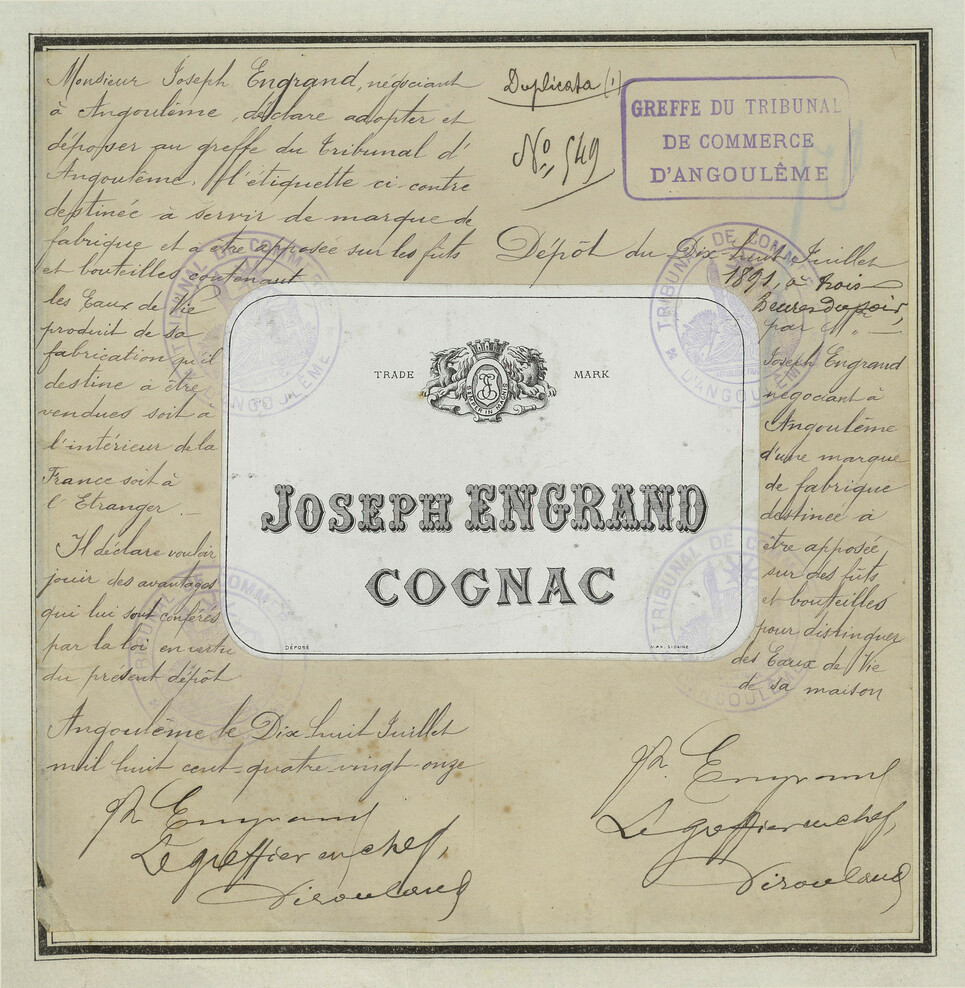 Monsieur Joseph Engrand, négociant
à Angoulême, déclare adopter et
déposer au greffe du tribunal d'
Angoulême, l'étiquette ci-contre
destinée à servir de marque de
fabrique et a être apposée sur les fûts
et bouteilles contenant
les Eaux de Vie
produit de sa
fabrication qu'il
destine à être
vendues soit à
l'intérieur de la
France soit à
l'Etranger.
Il déclare vouloir
jouir des avantages
qui lui sont conférés
par la loi en vertu
du présent dépôt
Angoulême le Dix huit Juillet
mil huit cent-quatre-vingt-onze
Jh. Engrand
Le greffier en chef,
Duplicata (1)
No 549
GREFFE DU TRIBUNAL
DE COMMERCE
D'ANGOULÊME
Dépôt du Dix huit Juillet
1891, à trois
heures du soir,
par M
Joseph Engrand
négociant à
Angoulême
d'une marque
de fabrique
destinée à
être apposée
sur des fûts
et bouteilles
pour distinguer
des Eaux de Vie
de sa maison
Jh. Engrand
Le greffier en chef,
TRADE MARK
JOSEPH ENGRAND
COGNAC
DÉPOSÉ
TRIBUNAL DE COMMERCE
D'ANGOULÊME
TRIBUNAL DE COMMERCE
D'ANGOULÊME
TRIBUNAL DE COMMERCE
TRIBUNAL DE COMMERCE
D'ANGOULÊME